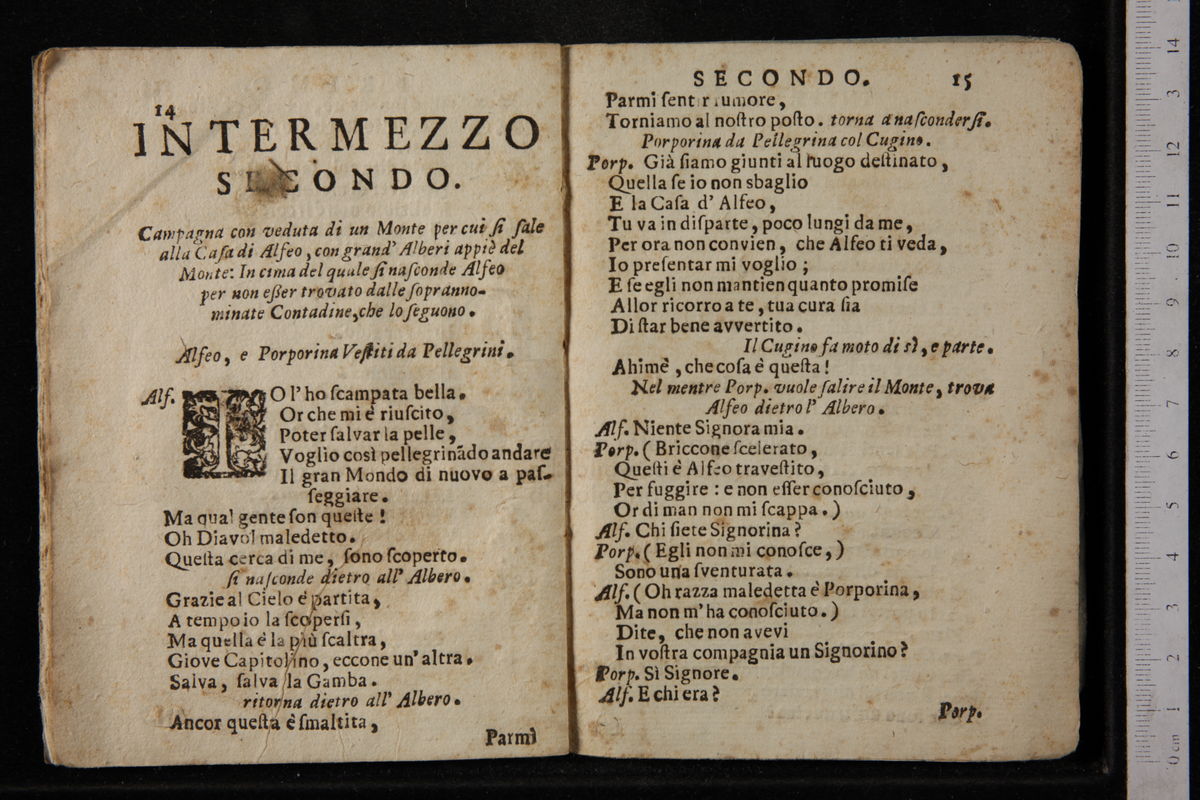 14
INTERMEZZO
SECONDO.
Campagna con veduta di un Monte per cui ſi ſale
alla Caſa di Alfeo, con grand' Alberi appiè del
Monte: In cima del quale ſi naſconde Alfeo
per non eſſer trovato dalle ſopranno-
minate Contadine, che lo ſeguono.
Alfeo, e Porporina Veſtiti da Pellegrini.
Alf. IO l' ho ſcampata bella.
Or che mi è riuſcito,
Poter ſalvar la pelle,
Voglio così pellegrinãdo andare
Il gran Mondo di nuovo a paſ-
ſeggiare.
Ma qual gente ſon queſte!
Oh Diavol maledetto.
Queſta cerca di me, ſono ſcoperto.
ſi naſconde dietro all' Albero.
Grazie al Cielo è partita,
A tempo io la ſcoperſi,
Ma quella è la più ſcaltra,
Giove Capitolino, eccone un' altra.
Salva, ſalva la Gamba.
ritorna dietro all' Albero.
Ancor queſta è ſmaltita,
Parmi
SECONDO. 15
Parmi ſentir rumore,
Torniamo al noſtro poſto. torna a naſconderſi.
Porporina da Pellegrina col Cugino.
Porp. Già ſiamo giunti al luogo deſtinato,
Quella ſe io non sbaglio
E la Caſa d' Alfeo,
Tu va in diſparte, poco lungi da me,
Per ora non convien, che Alfeo ti veda,
Io preſentar mi voglio;
E ſe egli non mantien quanto promiſe
Allor ricorro a te, tua cura ſia
Di ſtar bene avvertito.
Il Cugino fa moto di sì, e parte.
Ahimè, che coſa è queſta!
Nel mentre Porp. vuole ſalire il Monte, trova
Alfeo dietro l' Albero.
Alf. Niente Signora mia.
Porp. (Briccone ſcelerato,
Queſti è Alfeo traveſtito,
Per fuggire: e non eſſer conoſciuto,
Or di man non mi ſcappa.)
Alf. Chi ſiete Signorina?
Porp. (Egli non mi conoſce,)
Sono una ſventurata.
Alf. (Oh razza maledetta è Porporina,
Ma non m' ha conoſciuto.)
Dite, che non avevi
In voſtra compagnia un Signorino?
Porp. Sì Signore.
Alf. E chi era?
Porp.
0 cm 1 2 3 4 5 6 7 8 9 10 11 12 3 14